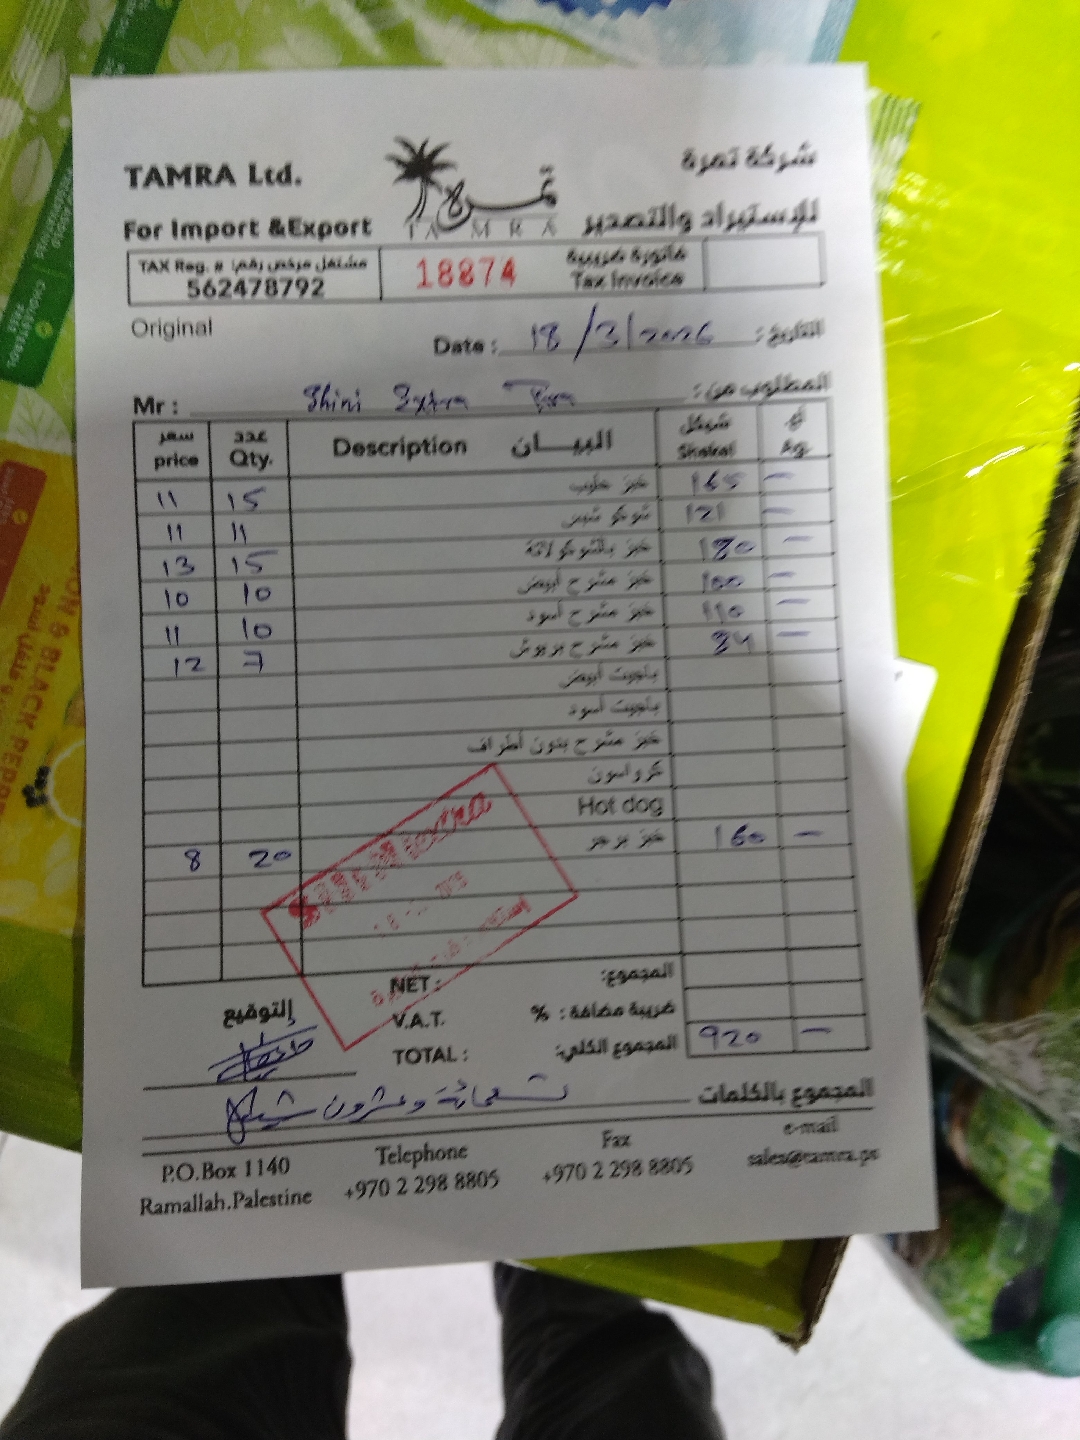 TAMRA Ltd.
شركة تمرة
For Import &Export
تمرة
TAMRA
للإستيراد والتصدير
TAX Reg. # مشتغل مرخص رقم:
562478792
18874
فاتورة ضريبية
Tax Invoice
Original
Date : 18/3/2026 التاريخ:
Mr : Shini Extra المطلوب من:
سعر price عدد Qty. Description البيــان شيكل Shekel Ag.
11 15 خبز حليب 165 -
11 11 121 -
13 15 خبز بالشوكولاتة 180 -
10 10 خبز مشرح أبيض 100 -
11 10 خبز مشرح أسود 110 -
12 7 خبز مشرح بريوش 84 -
باجيت أبيض
باجيت أسود
خبز مشرح بدون أطراف
كرواسون
Hot dog
8 20 خبز برجر 160 -
extra
NET : المجموع:
V.A.T. ضريبة مضافة : %
TOTAL : المجموع الكلي: 920 -
التوقيع
المجموع بالكلمات تسعمائة وعشرون شيكل
P.O.Box 1140
Ramallah.Palestine
Telephone
+970 2 298 8805
Fax
+970 2 298 8805
e-mail
sales@tamra.ps
BLACK PEPPE